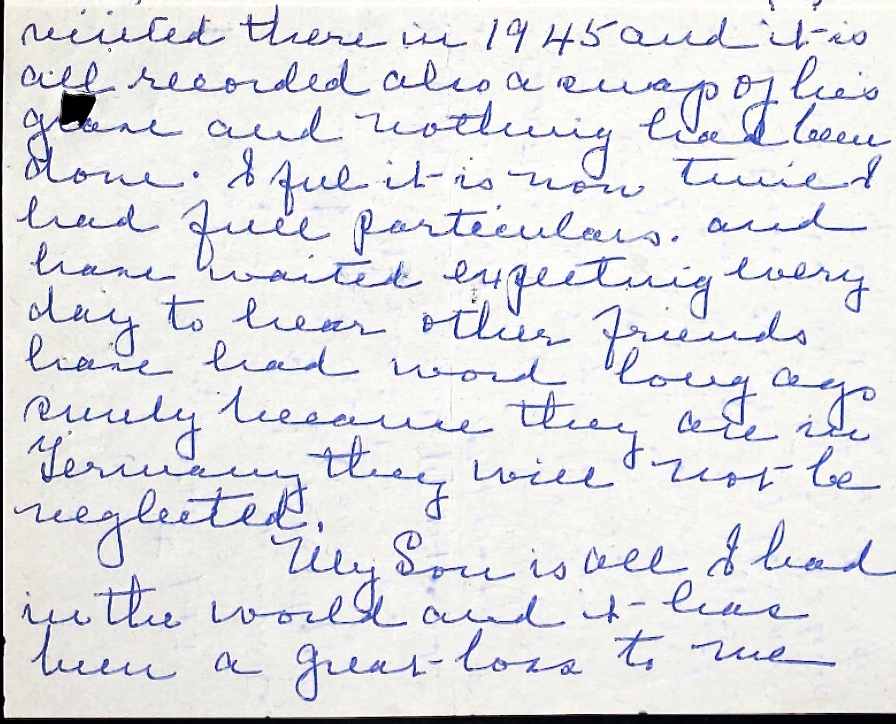 visited there in 1945 and it is
all recorded also a snap of his
grave and nothing had been
done. I feel it is now time I
had full particulars. and
have waited expecting every
day to hear other friends
have had word long ago
surely because they are in
Germany they will not be
neglected.
My Son is all I had
in the world and it has
been a great loss to me